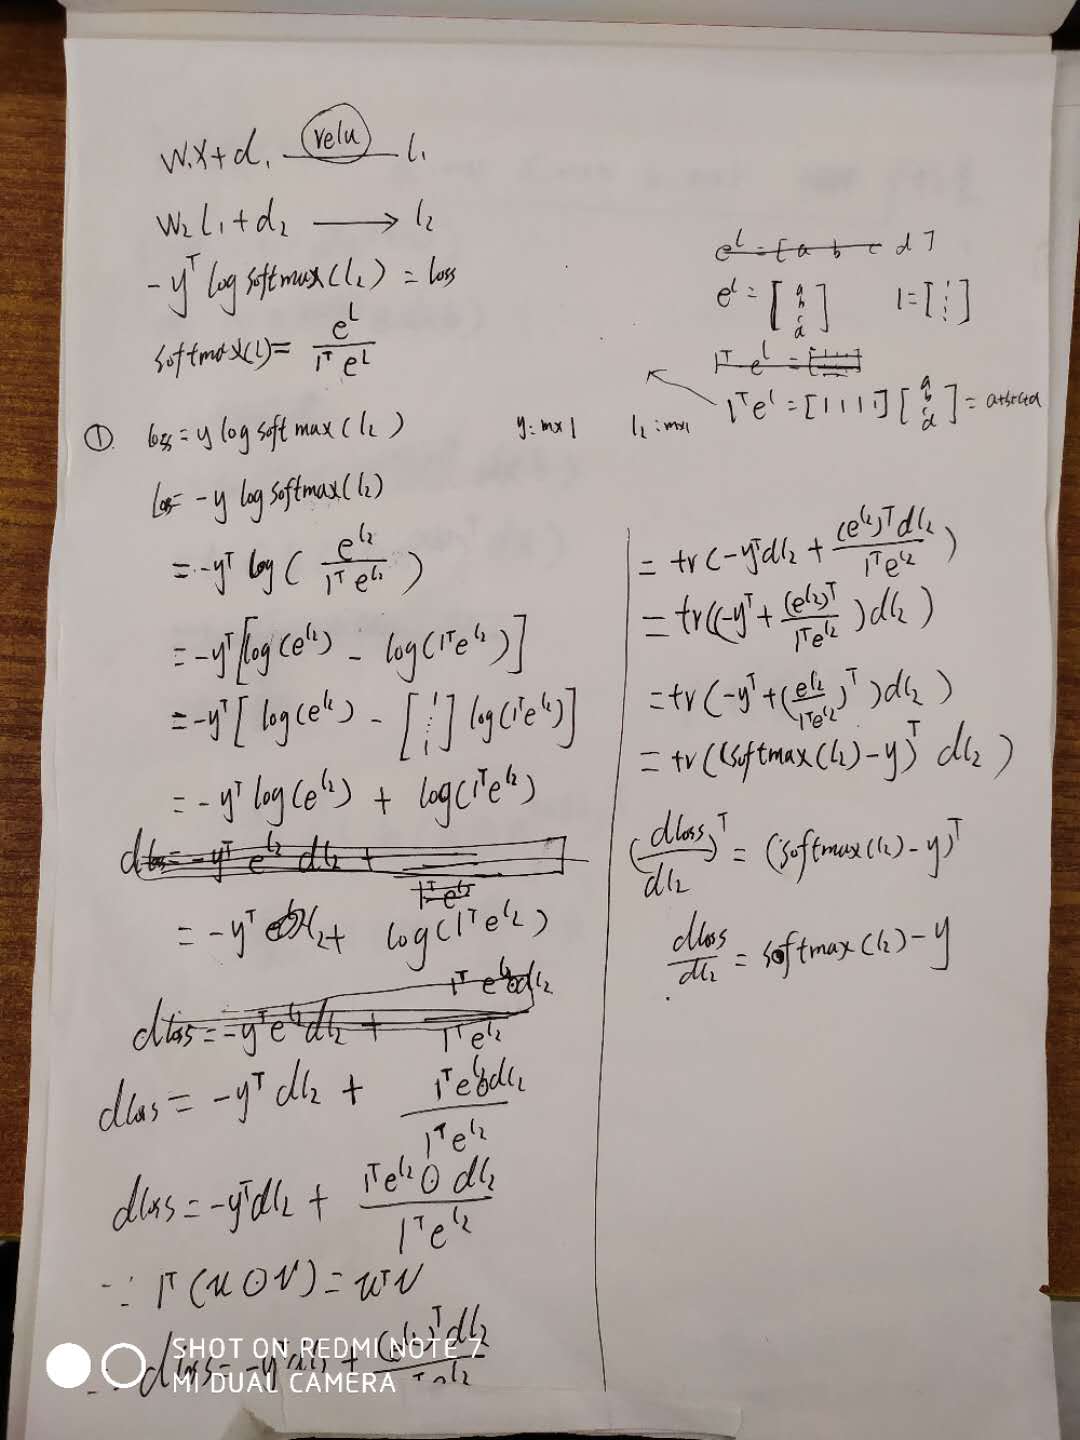 W₁X+d₁ —relu— l₁
W₂l₁+d₂ ⟶ l₂
-yᵀ log softmax(l₂) = loss
softmax(l) = e^l / 1ᵀe^l
e^l = [a b c d]
e^l = [a b c d] 1 = [1 ⋮ 1]
1ᵀ e^l =
1ᵀe^l = [1 1 1 1] [a b c d] = a+b+c+d
① loss = y log softmax(l₂) y: m×1 l₂: m×1
loss = -y log softmax(l₂)
= -yᵀ log( e^l₂ / 1ᵀe^l₂ )
= -yᵀ[log(e^l₂) - log(1ᵀe^l₂)]
= -yᵀ[log(e^l₂) - [1 ⋮ 1] log(1ᵀe^l₂)]
= -yᵀ log(e^l₂) + log(1ᵀe^l₂)
dloss = -yᵀ e^l₂ dl₂ + / 1ᵀe^l₂
= -yᵀ l₂ + log(1ᵀe^l₂)
dloss = -yᵀe^l₂dl₂ + 1ᵀe^l₂⊙dl₂ / 1ᵀe^l₂
dloss = -yᵀdl₂ + 1ᵀe^l₂⊙dl₂ / 1ᵀe^l₂
dloss = -yᵀdl₂ + 1ᵀe^l₂ ⊙ dl₂ / 1ᵀe^l₂
∵ 1ᵀ(u⊙v) = uᵀv
∴ dloss = -yᵀdl₂ + (e^l₂)ᵀdl₂ / 1ᵀe^l₂
= tr(-yᵀdl₂ + (e^l₂)ᵀdl₂ / 1ᵀe^l₂)
= tr((-yᵀ + (e^l₂)ᵀ / 1ᵀe^l₂)dl₂)
= tr(-yᵀ + (e^l₂ / 1ᵀe^l₂)ᵀ)dl₂)
= tr((softmax(l₂)-y)ᵀ dl₂)
(dloss / dl₂)ᵀ = (softmax(l₂)-y)ᵀ
dloss / dl₂ = softmax(l₂)-y
SHOT ON REDMI NOTE 7
MI DUAL CAMERA